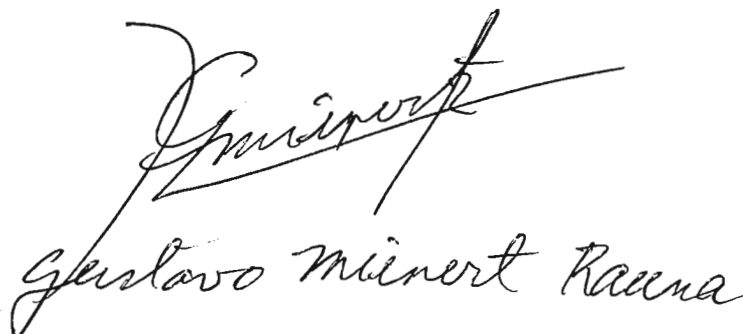 Gmienert
Gustavo Mienert Rauna